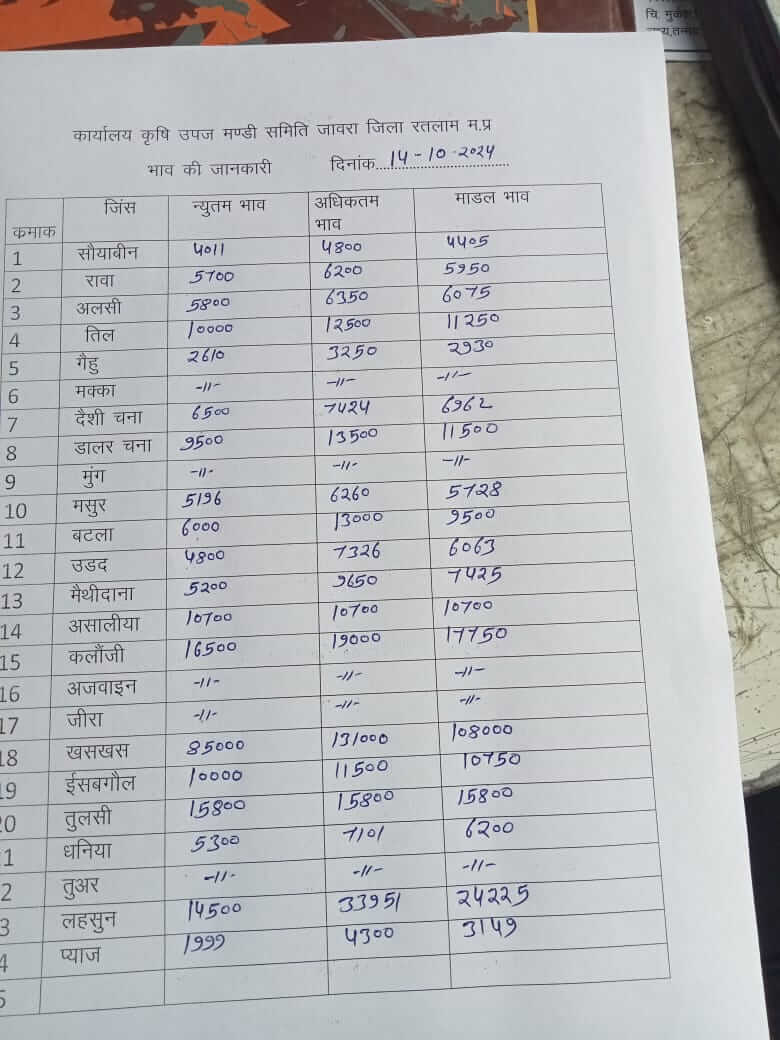 चि. मुकेश
कार्यालय कृषि उपज मण्डी समिति जावरा जिला रतलाम म.प्र
भाव की जानकारी दिनांक...14-10-2024...
कमाक जिंस न्युतम भाव अधिकतम भाव माडल भाव
1 सौयाबीन 4011 4800 4405
2 रावा 5700 6200 5950
3 अलसी 5800 6350 6075
4 तिल 10000 12500 11250
5 गैहु 2610 3250 2930
6 मक्का -11- -11- -11-
7 दैशी चना 6500 7424 6962
8 डालर चना 9500 13500 11500
9 मुंग -11- -11- -11-
10 मसुर 5196 6260 5728
11 बटला 6000 13000 9500
12 उडद 4800 7326 6063
13 मैथीदाना 5200 9650 7425
14 असालीया 10700 10700 10700
15 कलौंजी 16500 19000 17750
16 अजवाइन -11- -11- -11-
17 जीरा -11- -11- -11-
18 खसखस 85000 131000 108000
19 ईसबगौल 10000 11500 10750
20 तुलसी 15800 15800 15800
1 धनिया 5300 7101 6200
2 तुअर -11- -11- -11-
3 लहसुन 14500 33951 24225
4 प्याज 1999 4300 3149
5